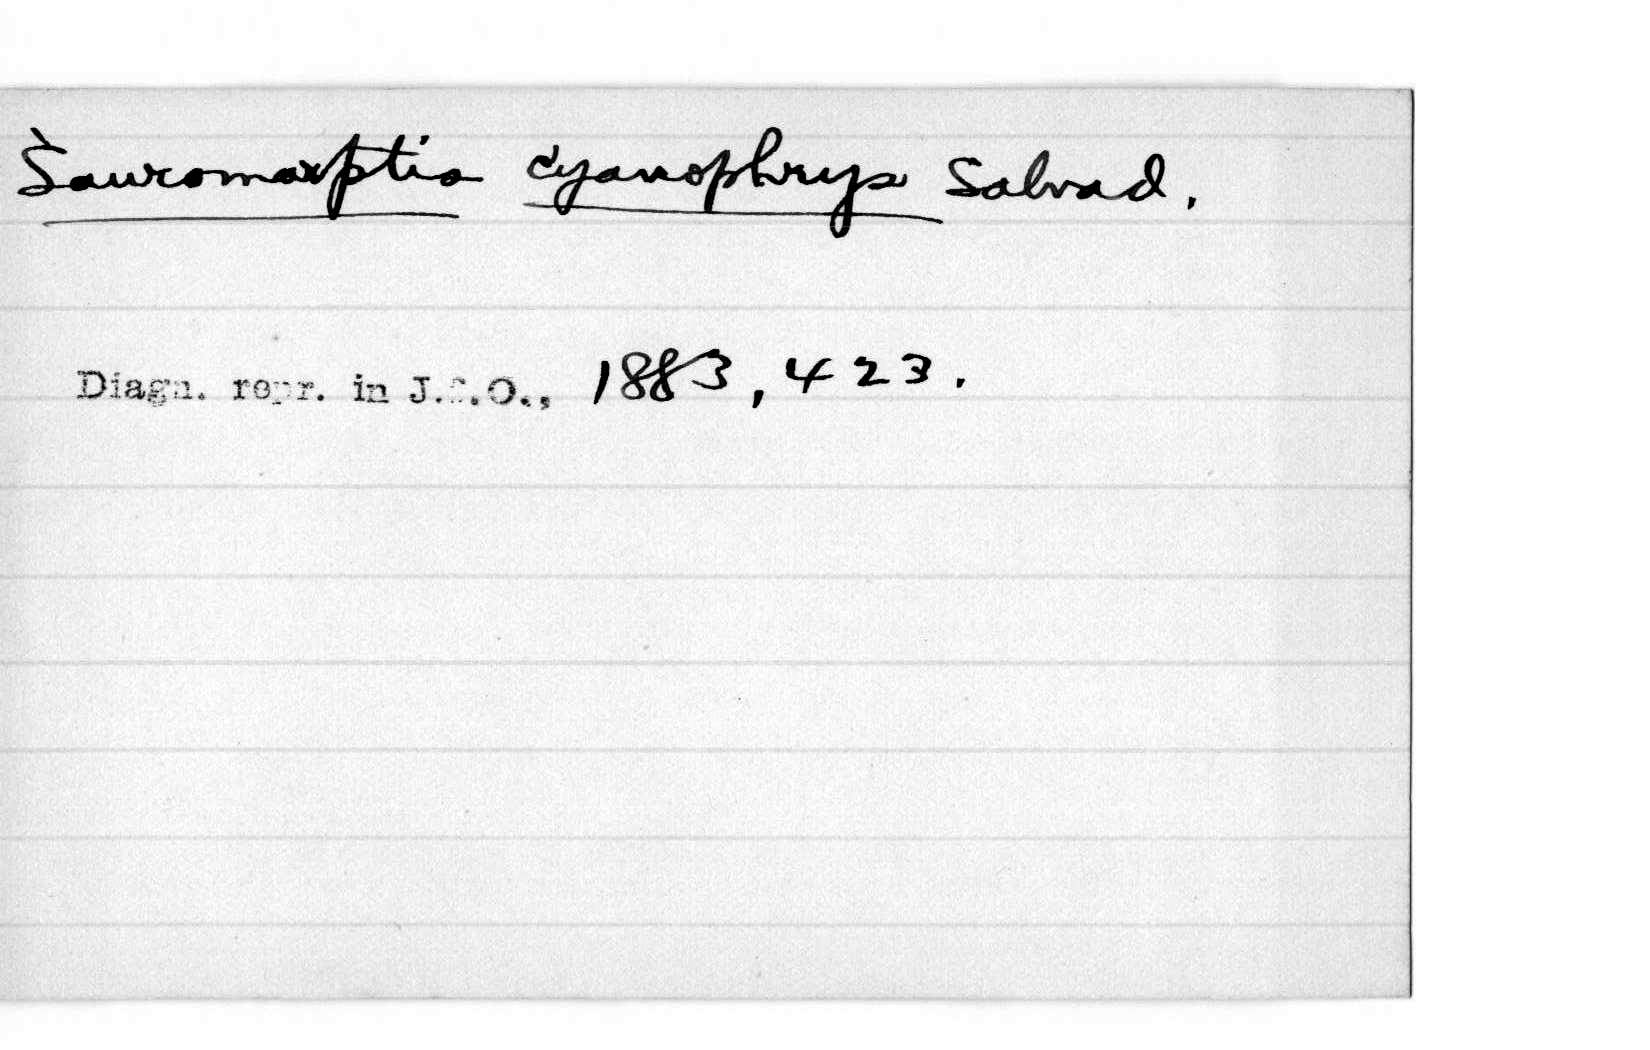 Sauromarptis cyanophrys Salvad.
Diagn. repr. in J.f.O., 1883, 423.